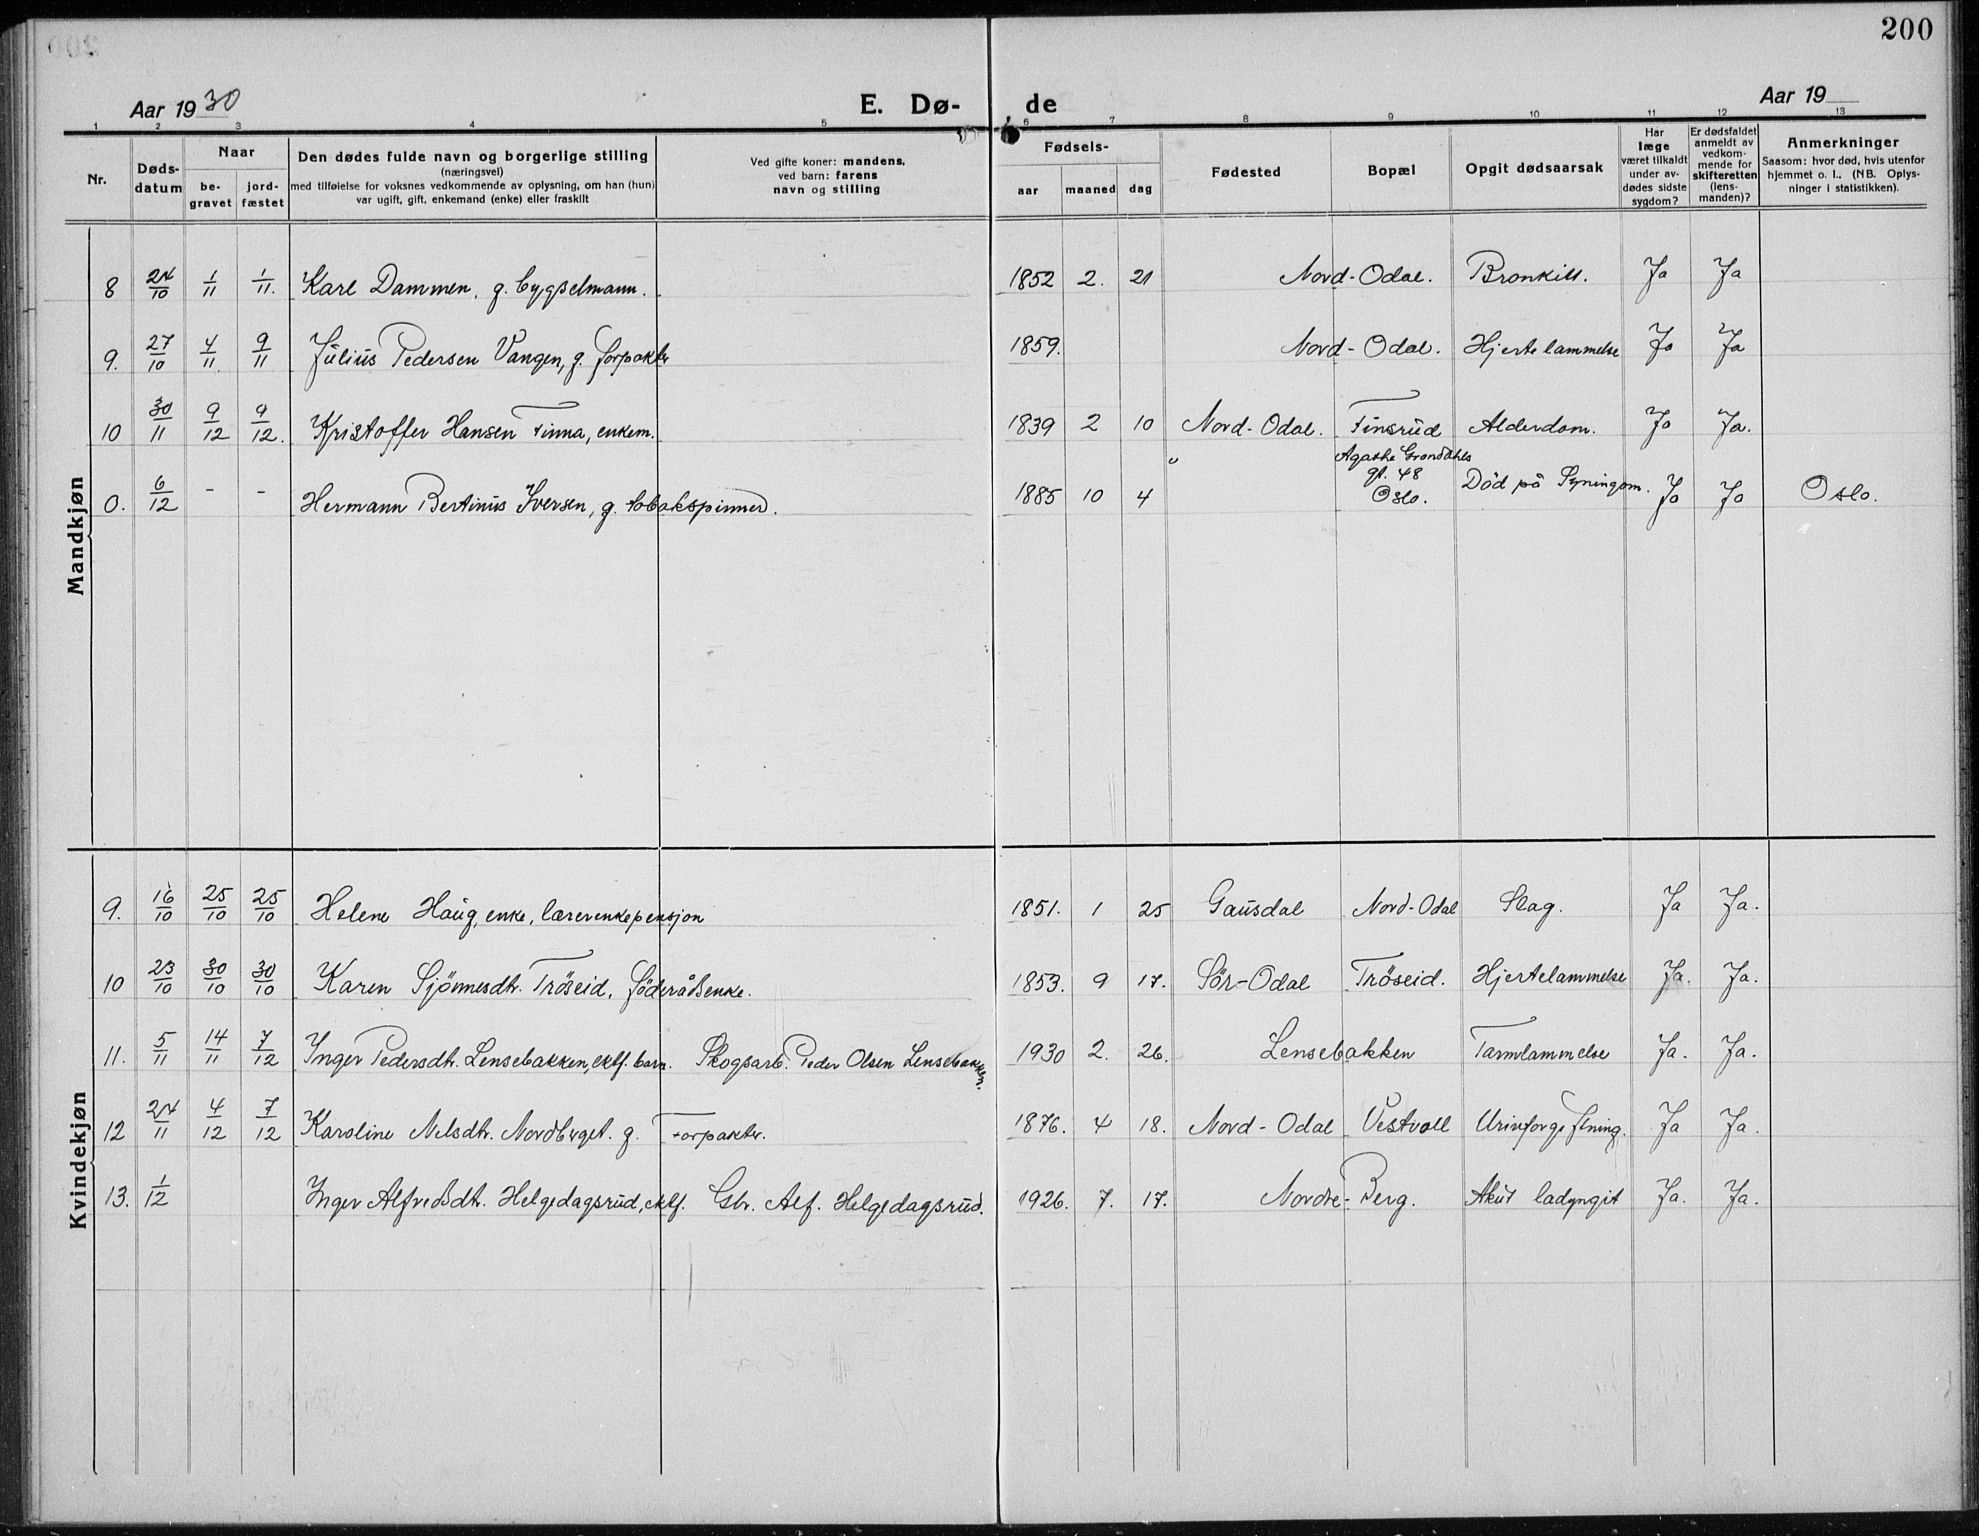 200
Aar 1930 E. Dø- de Aar 19
1 2 3 4 5 6 7 8 9 10 11 12 13
Nr.
Døds-
datum
Naar
be-
gravet
jord-
fæstet
Den dødes fulde navn og borgerlige stilling
(næringsvei)
med tilføielse for voksnes vedkommende av oplysning, om han (hun)
var ugift, gift, enkemand (enke) eller fraskilt
Ved gifte koner: mandens,
ved barn: farens
navn og stilling
Fødsels-
aar maaned dag
Fødested
Bopæl
Opgit dødsaarsak
Har
læge
været tilkaldt
under av-
dødes sidste
sygdom?
Er dødsfaldet
anmeldt av
vedkom-
mende for
skifteretten
(lens-
manden)?
Anmerkninger
Saasom: hvor død, hvis utenfor
hjemmet o. l., (NB. Oplys-
ninger i statistikken).
Mandkjøn
8 24/10 1/11 1/11. Karl Dammen, g. bygselmann. 1852 2. 21 Nord-Odal. Bronkitt. Ja Ja
9. 27/10 4/11 9/11 Julius Pedersen Vangen, g. forpakter 1859. Nord-Odal. Hjertelammelse Ja Ja
10 30/11 9/12 9/12. Kristoffer Hansen Finna, enkem. 1839 2 10 Nord-Odal. Finsrud Alderdom. Ja Ja.
0. 6/12 - - Hermann Bertinus Iversen, g. tobakspinner. 1885 10 4 " Agathe Grøndahls
gt. 48
Oslo. Død på Ja Ja Oslo.
Kvindekjøn
9. 16/10 25/10 25/10 Helene Haug, enke, lærerenkepensjon 1851. 1 25 Gausdal Nord-Odal Slag. Ja Ja.
10 23/10 30/10 30/10 Karen Sjønnesdtr. Trøseid, føderådsenke. 1853. 9 17. Sør-Odal Trøseid. Hjertelammelse Ja. Ja.
11. 5/11 14/11 7/12 Inger Pedersdtr. Lensebakken, ektf. barn. Skogsarb. Peder Olsen Lensebakken. 1930 2. 26. Lensebakken Tarmlammelse Ja. Ja.
12 24/11 4/12 7/12 Karoline Nilsdtr. Nordberget. g. Forpakter. 1876. 4 18. Nord-Odal Vestvoll Urinforgiftning. Ja Ja.
13. 1/12 Inger Alfredsdtr. Helgedagsrud, ektf. Gbr. Alf. Helgedagsrud. 1926. 7. 17. Nordre-Berg. Akut ladyngit Ja. Ja.